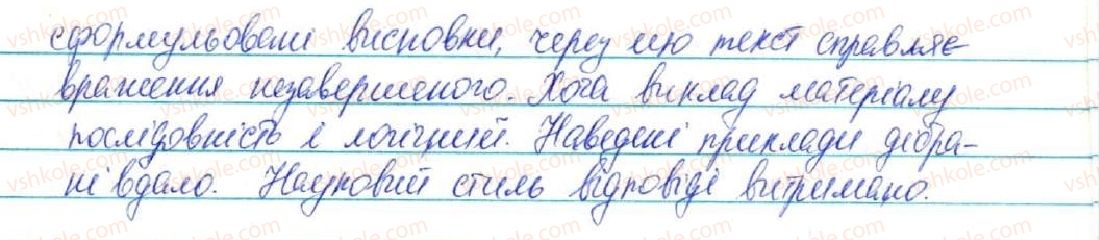 сформульовані висновки, через що текст справляє
враження незавершеного. Хоча виклад матеріалу
послідовність і логічний. Наведені приклади дібра-
ні вдало. Науковий стиль відповіді витримано.